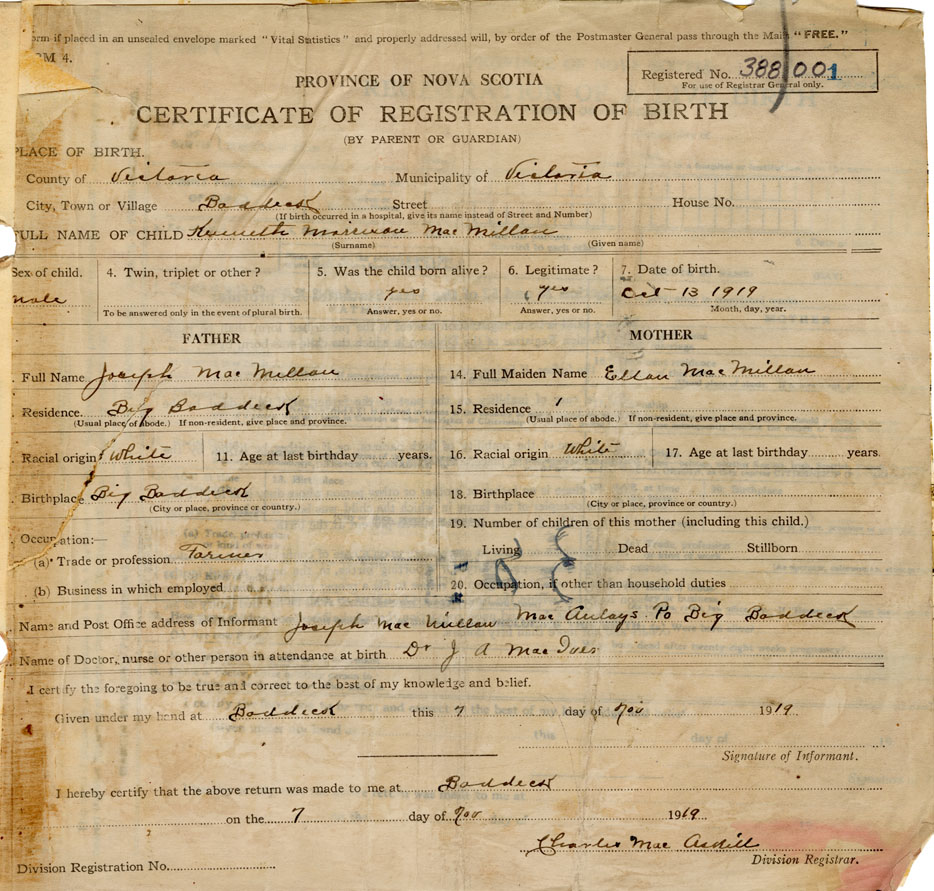 orm if placed in an unsealed envelope marked "Vital Statistics" and properly addressed will, by order of the Postmaster General pass through the Mail "FREE."
RM 4.
PROVINCE OF NOVA SCOTIA
Registered No. 388 001
For use of Registrar General only.
CERTIFICATE OF REGISTRATION OF BIRTH
(BY PARENT OR GUARDIAN)
PLACE OF BIRTH.
County of Victoria Municipality of Victoria
City, Town or Village Baddeck Street House No.
(If birth occurred in a hospital, give its name instead of Street and Number)
FULL NAME OF CHILD Kenneth Morrison Mac Millan
(Surname) (Given name)
Sex of child. 4. Twin, triplet or other? 5. Was the child born alive? 6. Legitimate? 7. Date of birth.
male yes yes Oct 13 1919
To be answered only in the event of plural birth. Answer, yes or no. Answer, yes or no. Month, day, year.
FATHER MOTHER
. Full Name Joseph Mac Millan 14. Full Maiden Name Ellan Mac Millan
. Residence. Big Baddeck 15. Residence
(Usual place of abode.) If non-resident, give place and province. (Usual place of abode.) If non-resident, give place and province.
. Racial origin White 11. Age at last birthday years. 16. Racial origin White 17. Age at last birthday years.
. Birthplace Big Baddeck 18. Birthplace
(City or place, province or country.) (City or place, province or country.)
19. Number of children of this mother (including this child.)
. Occupation:—
Living Dead Stillborn
(a) Trade or profession Farmer
(b) Business in which employed 20. Occupation, if other than household duties
Name and Post Office address of Informant Joseph Mac Millan Mac Aulays Po Big Baddeck
Name of Doctor, nurse or other person in attendance at birth Dr J A Mac Iver
I certify the foregoing to be true and correct to the best of my knowledge and belief.
Given under my hand at Baddeck this 7 day of Nov 1919
Signature of Informant.
I hereby certify that the above return was made to me at Baddeck
on the 7 day of Nov 1919
Charles Mac Askill
Division Registration No. Division Registrar.